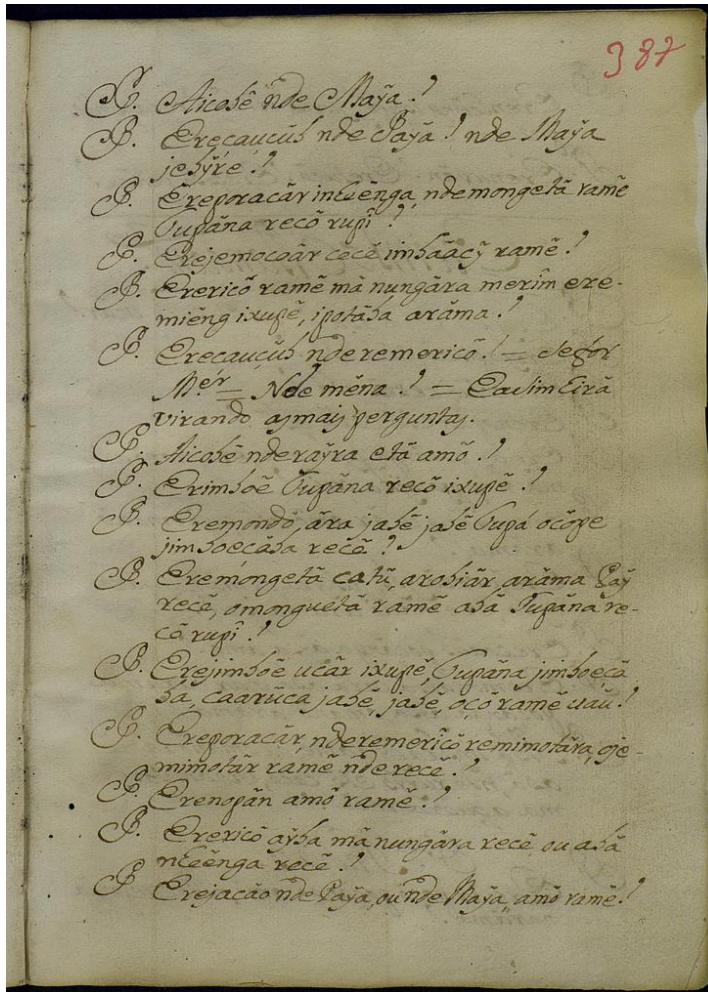 387
P. Aicobê ñde Maÿa.?
P. Ereçauçúb nde Paÿa? nde Maÿa
jebÿrê.?
P. Ereporacár inheẽnga, ndemongetá ramẽ
Tupãna recõ rupî?
P. Erejemocoár cecẽ imbaacÿ ramẽ.?
P. Erericõ ramẽ mã nungára merim ere-
miẽng ixupẽ, ipotába arãma.?
P. Ereçauçúb nderemericõ.? = se for
M.er = Nde mẽna.? =
virando as mais perguntas.
P. Aicobê nderaÿra etá amõ.?
P. Erimboẽ Tupãna recõ ixupẽ.?
P. Eremondõ, ára jabẽ jabẽ Tupá ocõpe
jimboeçába recẽ?
P. Eremongetá catú, arobiár arãma Paÿ
recẽ, omonguetá ramẽ abá Tupãna re-
cõ rupî.?
P. Erejimboẽ ucár ixupẽ, Tupãna jimboeçá
ba, caarúca jabẽ, jabẽ, oçõ ramẽ uaú?
P. Ereporacár, nderemericõ remimotára, oje-
mimotár ramẽ ñde recẽ.?
P. Erenopãn amõ ramẽ.?
P. Erericõ aÿba mã nungára recẽ ou abá
nheẽnga recẽ.?
P. Erejacáo nde Paÿa, ou ñde Maÿa, amõ ramẽ.?